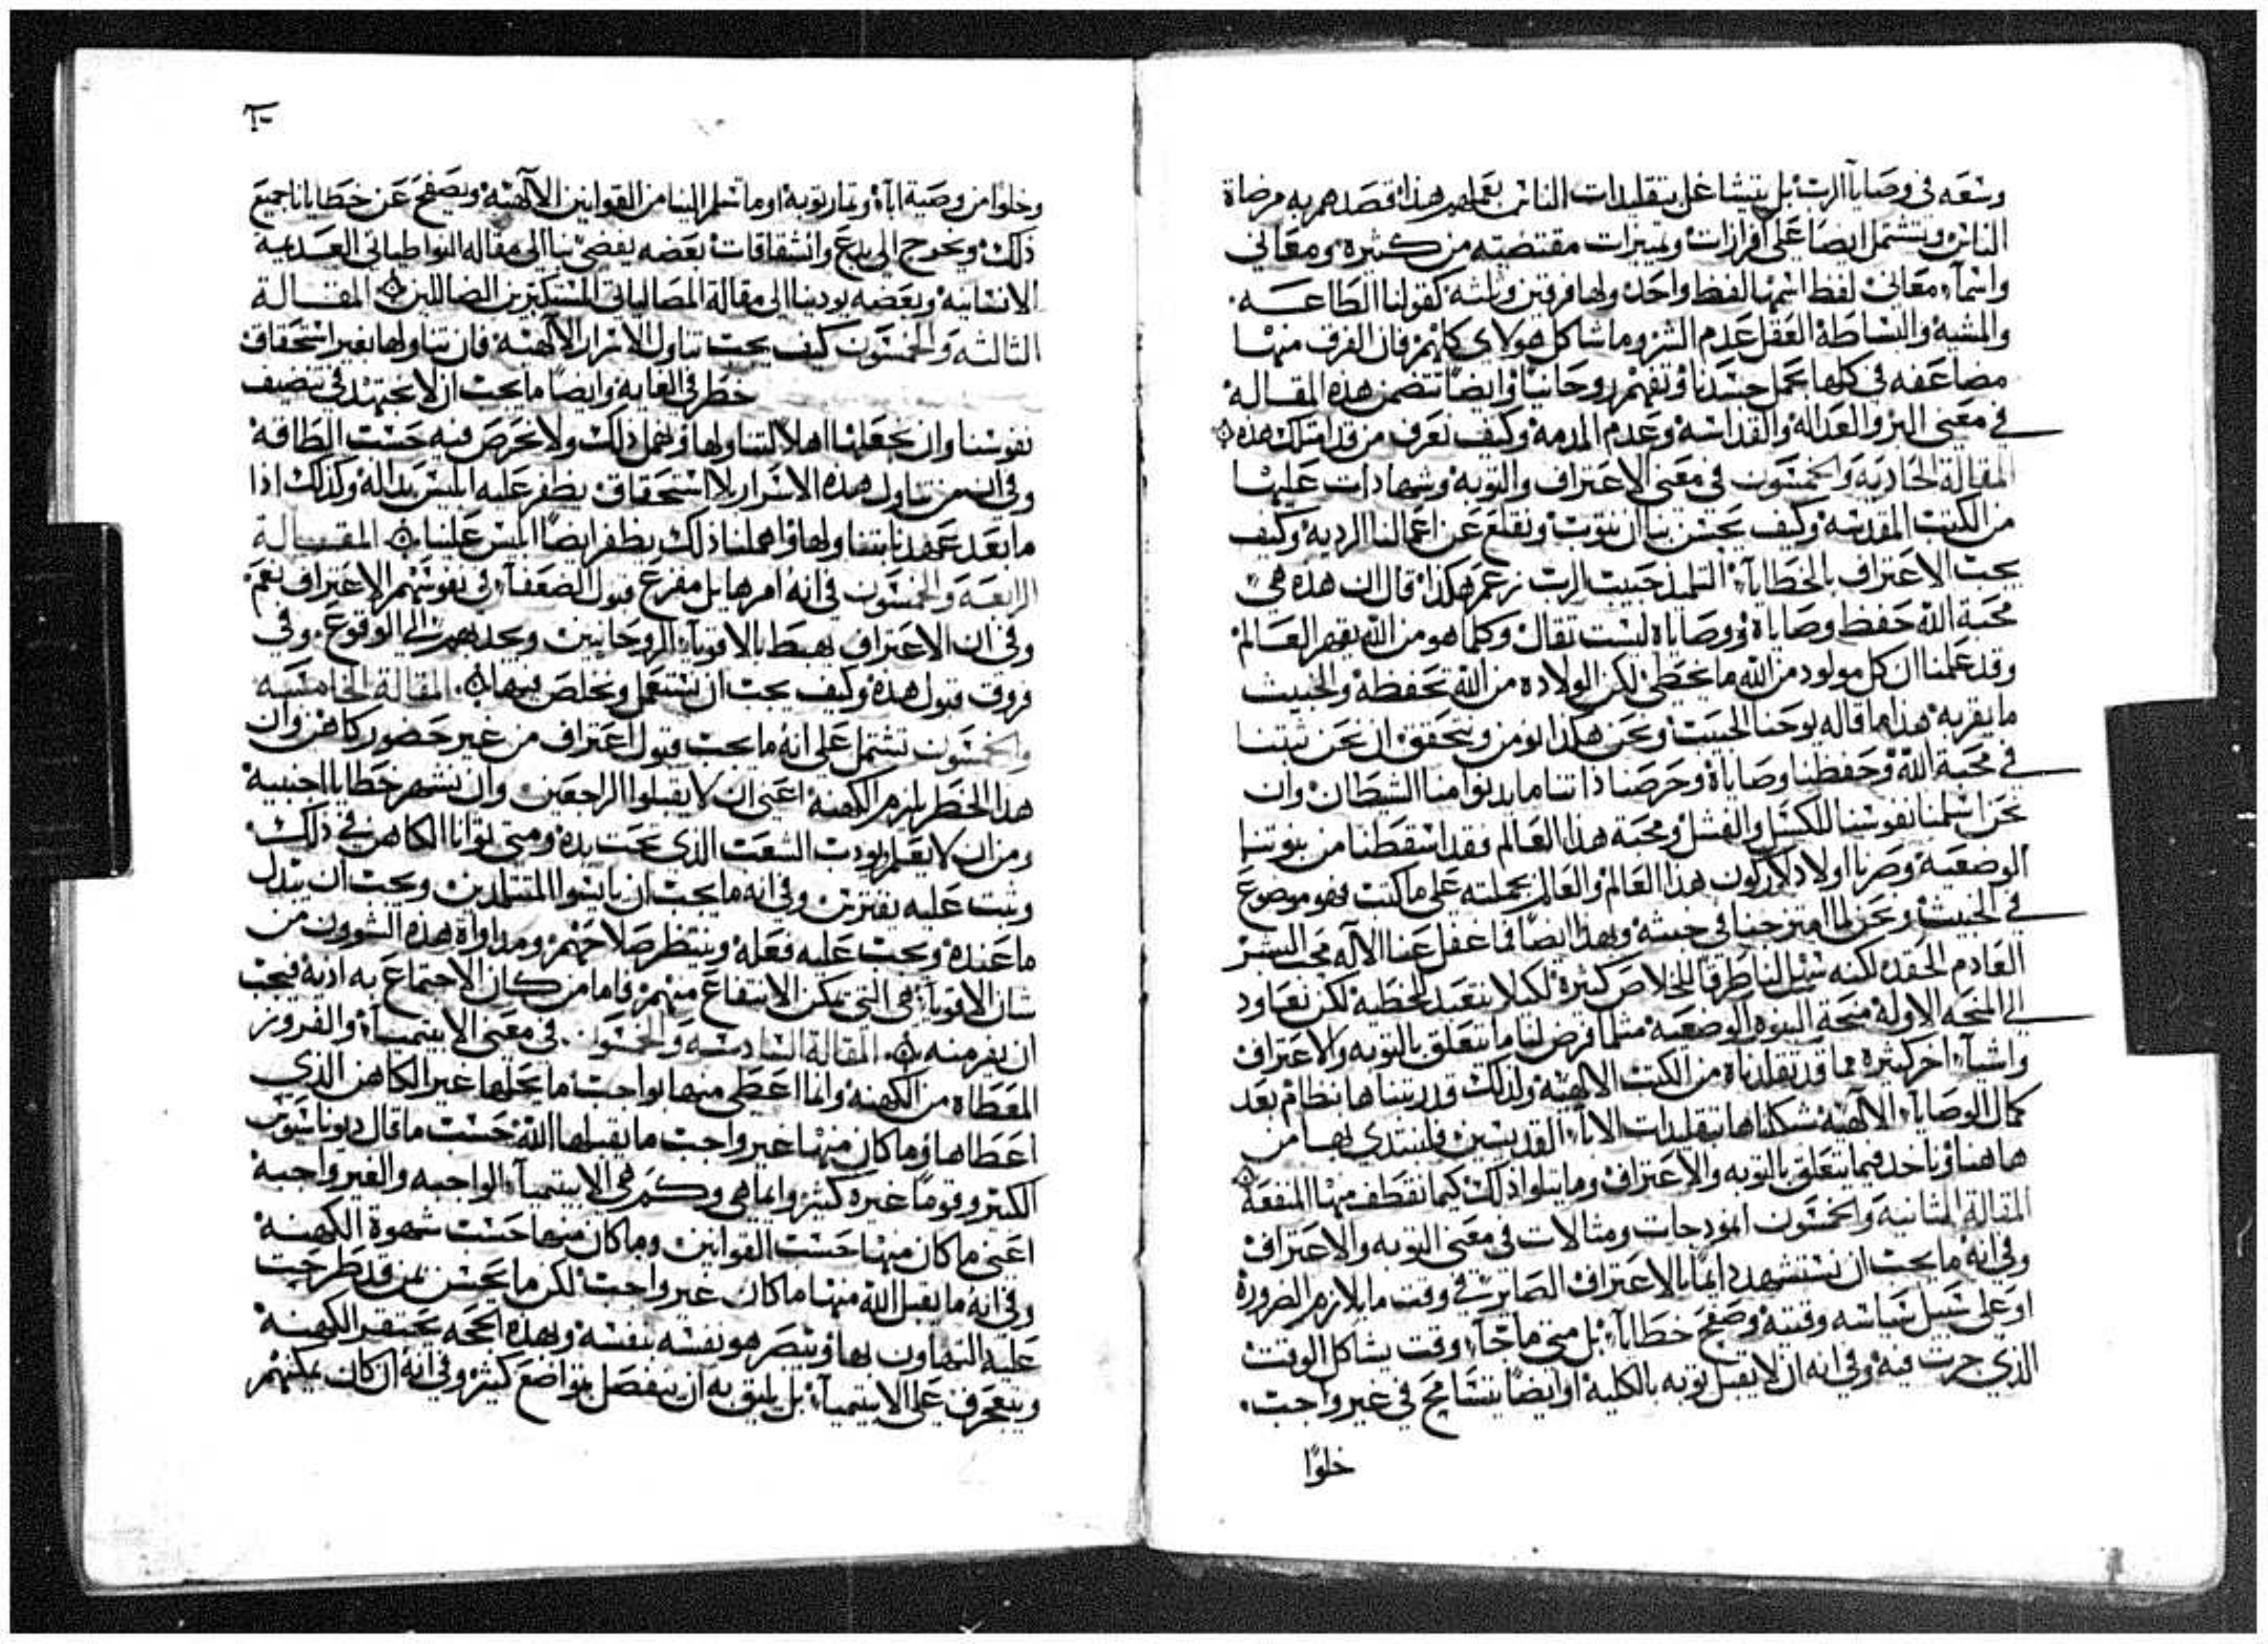 وسعه في وصايا الرب بل يتشاغل بتقليدات الناس بعملهم هذا قصدهم به مرضاة
الناس وتشتمل ايضا على افرازات وتمييزات مقتضبه من كثيرة ومعاني
واسماء معاني لفظ اسمها لفظ واحد ولها فرقين وثلثه كقولنا الطاعه
والمشيه والبساطه العقل عدم الشر وما شاكل هولاى كلهم فان الفرق منها
مضاعفه في كلها بحمل جسدنا وتفهم روحانيا وايضا تتضمن هذه المقاله
في معنى البر والعداله والقداسه وعدم المذمه وكيف نعرف من قد امتلك هذه
المقالة الحاديه والخمسون في معنى الاعتراف والتوبه وشهادات عليها
من الكتب المقدسه وكيف يحسن بنا ان نتوب ونقلع عن اعمالنا الرديه وكيف
يجب الاعتراف بالخطايا التلميذ حبيب الرب زعم هكذا قال ان هذه هي
محبة الله حفظ وصاياه ووصاياه ليست تقال وكلما هو من الله يقهر العالم
وقد علمنا ان كل مولود من الله ما يخطئ لكن الولاده من الله تحفظه والخبيث
ما يقربه هذا ما قاله يوحنا الحبيب ونحن هكذا نومن ونتحقق ان نحن ثبتنا
في محبة الله وحفظنا وصاياه وحرصنا ذاتنا ما يدنوا منا الشيطان وان
نحن اسلمنا نفوسنا للكسل والفشل ومحبة هذا العالم فقد اسقطنا من بنوتنا
الوضعيه وصرنا اولاد لاركون هذا العالم والعالم بجملته على ما كتب فهو موضوع
في الخبيث ونحن لما امتزجنا في خبثه وبهذا ايضا فما غفل عنا الاله محب البشر
العادم الحقد لكنه سبل لنا طرقا للخلاص كثيرة لكيلا نتعبد للخطيه لكن نعاود
الى المنحه الاوله منحة البنوه الوضعيه مثلما فرض لنا ما يتعلق بالتوبه والاعتراف
واشياء اخر كثيرة مما قد تقلدناه من الكتب الالهيه ولذلك قد رتبناها بنظام بعد
كمال الوصايا الالهيه شكلناها بتقليدات الاباء القديسين فلنبتدي بها من
هاهنا وناخذ فيما يتعلق بالتوبه والاعتراف وما يتلوا ذلك كيما نقطف منها المنفعه
المقالة الثانيه والخمسون انموذجات ومثالات في معنى التوبه والاعتراف
وفي انه ما يجب ان نستشهد دايما بالاعتراف الصاير في وقت ما بلازم الضروره
او على سبيل سياسه وقتيه وصفح خطايا بل متى ما جاء وقت يشاكل الوقت
الذي جرت فيه وفي انه ان لا يقبل توبه بالكليه او ايضا يتسامح في غير واجب
خلوًا
وخلوا من وصية اباء وثمار توبه او ما تسلم الينا من القوانين الالهيه ويصفح عن خطايانا جميع
ذلك ويخرج الى بدع وانشقاقات بعضه يفضي بنا الى مقاله النواطياني العديمه
الانسانيه وبعضه يودينا الى مقالة المصالياني المستكبرين الضالين المقاله
الثالثه والخمسون كيف يجب تناول الاسرار الالهيه فان تناولها بغير استحقاق
خطر في الغايه وايضا ما يجب ان لا نجتهد في تنضيف
نفوسنا وان نجعلها اهلا لتناولها ونهمل ذلك ولا نحرص فيه حسب الطاقه
وفي ان من تناول هذه الاسرار بلا استحقاق يظفر عليه ابليس بداله وكذلك اذا
ما بعد عهدنا بتناولها واهملنا ذلك يظفر ايضا ابليس علينا المقاله
الرابعه والخمسون في انه امر هايل مفزع قبول الضعفاء في نفوسهم الاعتراف نعم
وفي ان الاعتراف يهبط بالاقوياء الروحانيين ويجذبهم الى الوقوع وفي
فروق قبول هذه وكيف يجب ان يستعمل ونخلص فيها المقالة الخامسه
والخمسون تشتمل على انه ما يجب قبول اعتراف من غير حضور كاهن وان
هذا الخطر يلزم الكهنه اعني ان لا يقبلوا الراجعين وان يشهر خطايا اجنبيه
ومن ان لا يعلم يودب الشعب الذي تحت يده ومتى توانا الكاهن في ذلك
وثبت عليه يفترس وفي انه ما يجب ان يايسوا المتسلمدين ويجب ان يبذل
ما عنده ويجب عليه فعله وينتظر صلاحهم ومداواة هذه الشوون من
شان الاقوياء في التي تمكن الانتفاع منهم فاما من كان الاجتماع به اذيه فيجب
ان يفر منه المقالة السادسه والخمسون في معنى الابيتيميا والفروز
المعطاه من الكهنه وانما اعطى منها بواجب ما يحلها غير الكاهن الذي
اعطاها وما كان منها غير واجب ما يقبلها الله حسب ما قال ديوناسيوس
الكبير وقوما غيره كثير وايما هي وكم هي الابيتيميا الواجبه والغير واجبه
اعني ما كان منها حسب القوانين وما كان منها حسب شهوة الكهنه
وفي انه ما يقبل الله منها ما كان غير واجب لكن ما يحسن لمن قد طرحت
عليه التهاون بها وينصر هو نفسه بنفسه وبهذه الحجه يحتقر الكهنه
ويتعجرف على الابيتيميا بل يليق به ان يتفضل بتواضع كثير وفي انه ان كان يمكنهم